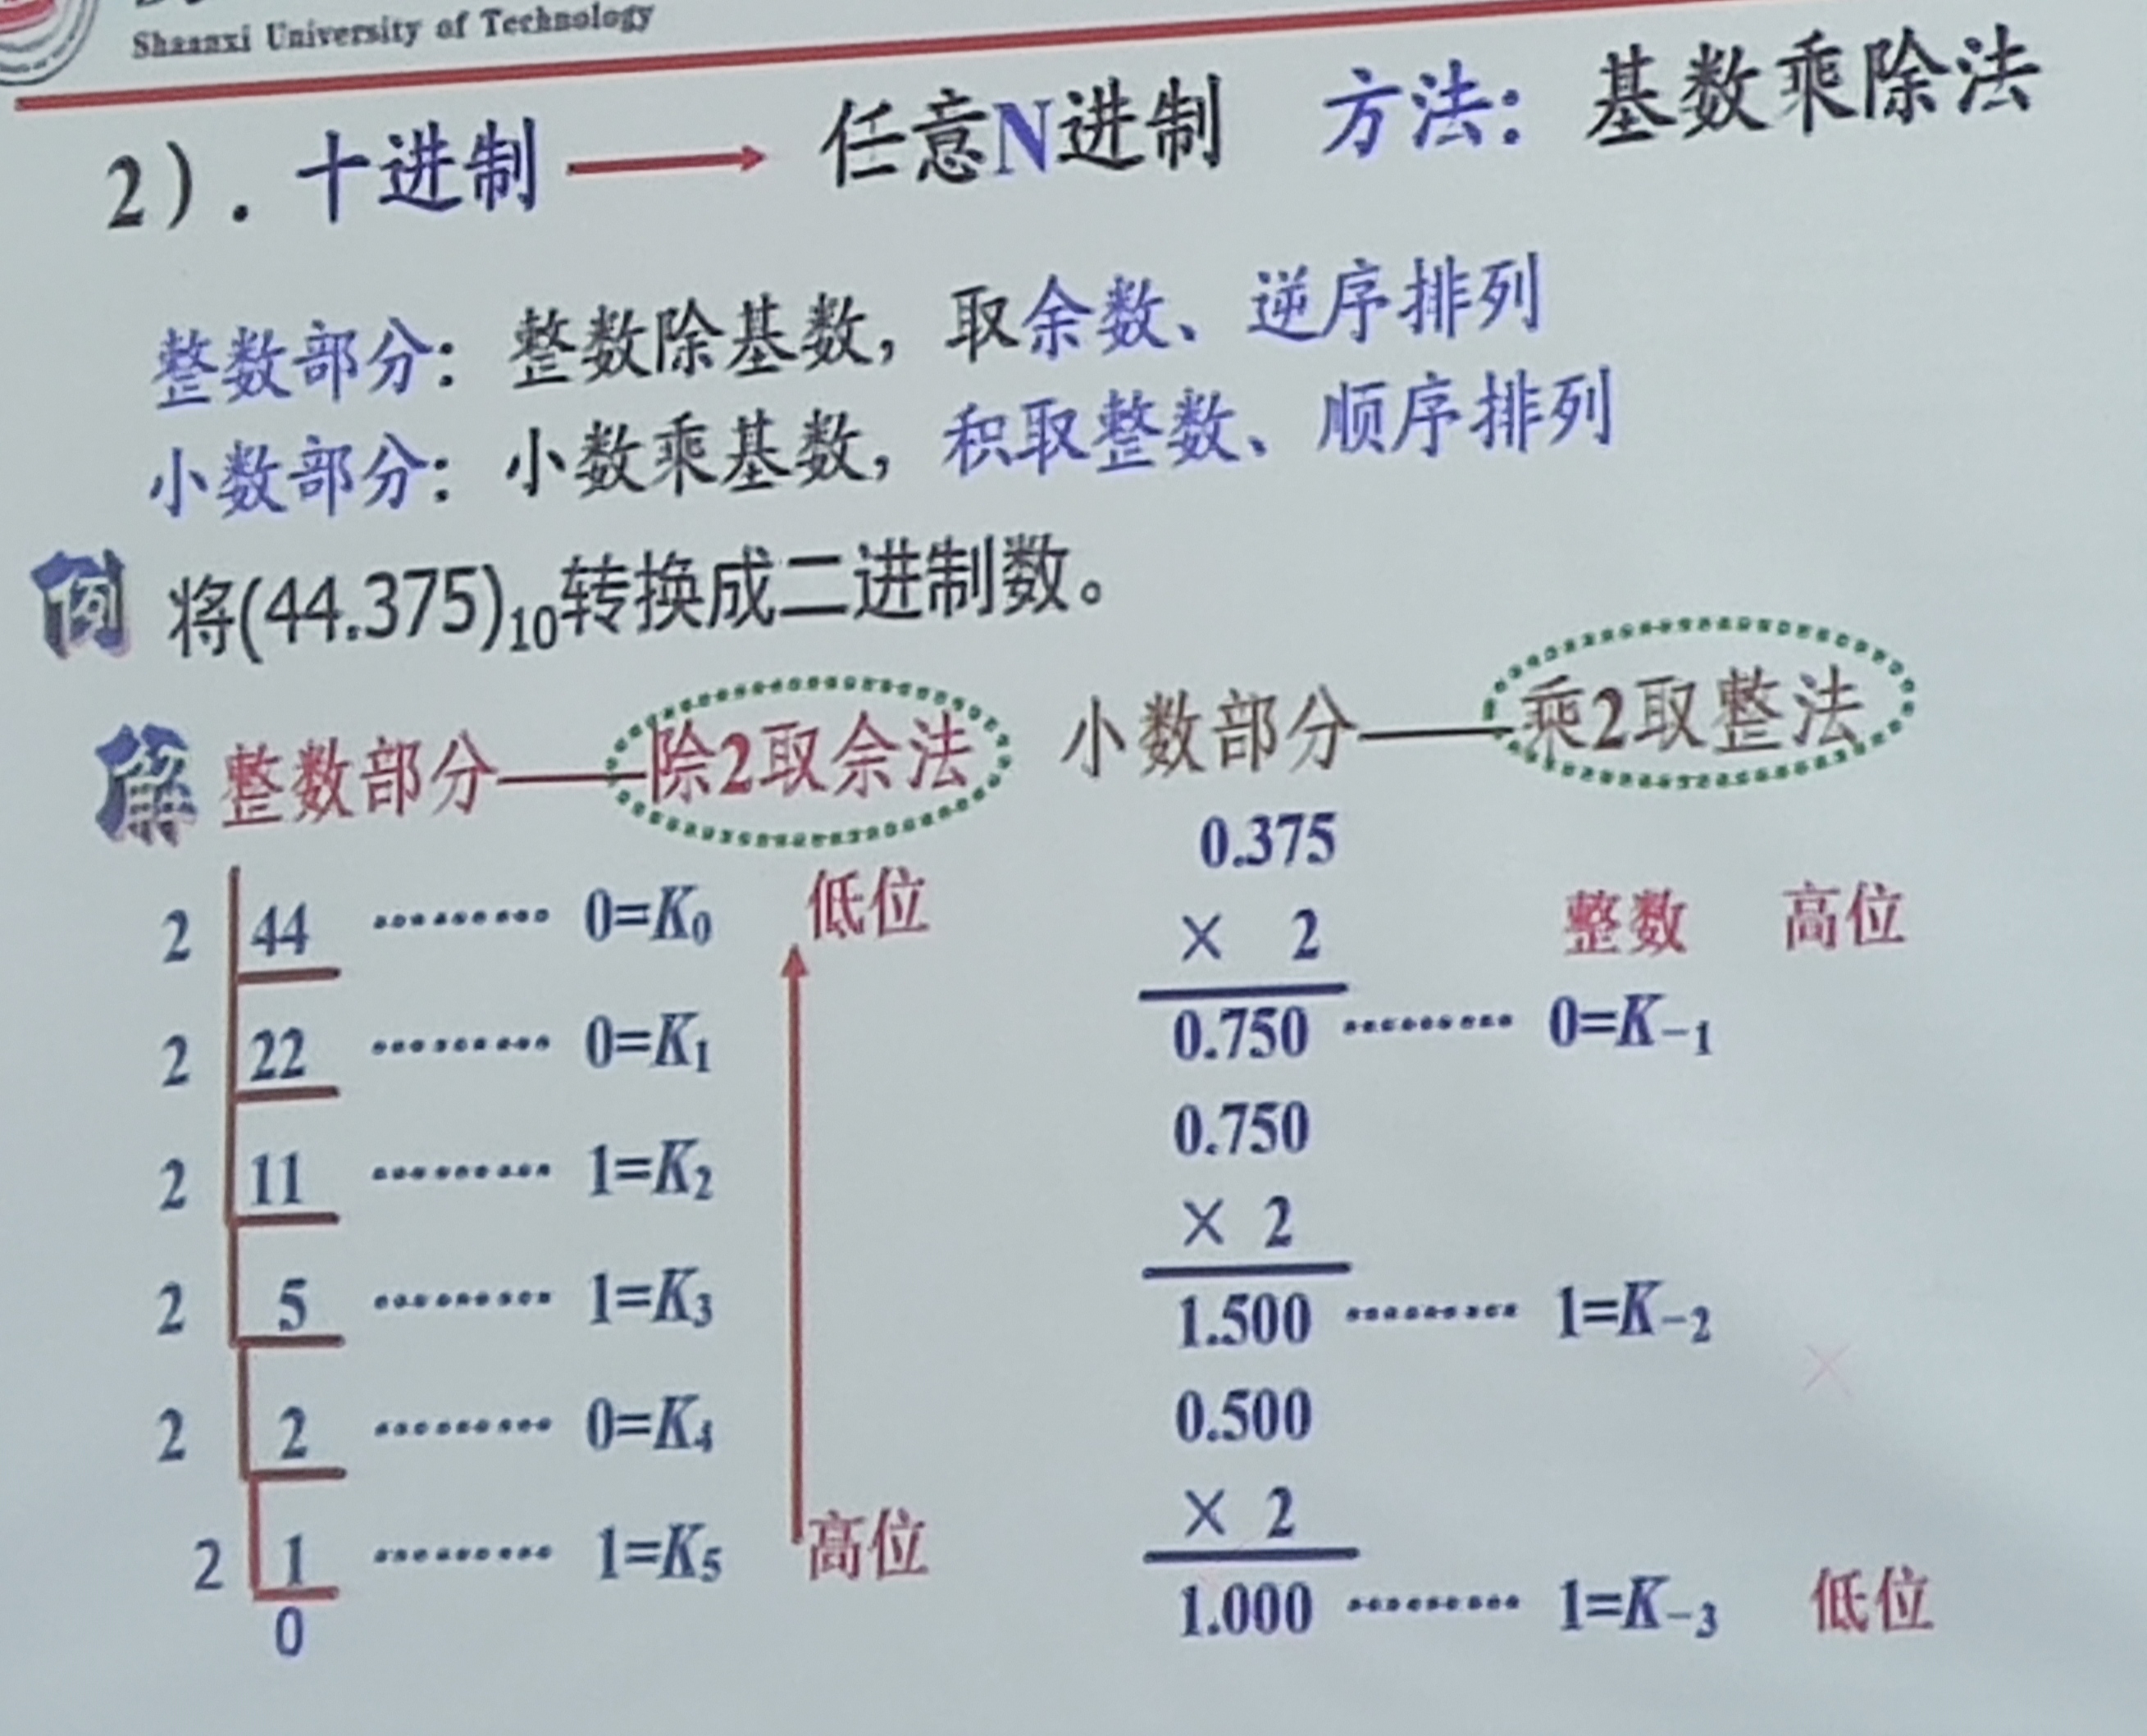 Shaanxi University of Technology
2）. 十进制 → 任意N进制 方法：基数乘除法
整数部分：整数除基数，取余数、逆序排列
小数部分：小数乘基数，积取整数、顺序排列
例 将(44.375)₁₀转换成二进制数。
解 整数部分——除2取余法
2 44 ········· 0=K₀ 低位
2 22 ········· 0=K₁
2 11 ········· 1=K₂
2 5 ········· 1=K₃
2 2 ········· 0=K₄
2 1 ········· 1=K₅ 高位
0
小数部分——乘2取整法
0.375
× 2 整数 高位
0.750 ········· 0=K₋₁
0.750
× 2
1.500 ········· 1=K₋₂
0.500
× 2
1.000 ········· 1=K₋₃ 低位